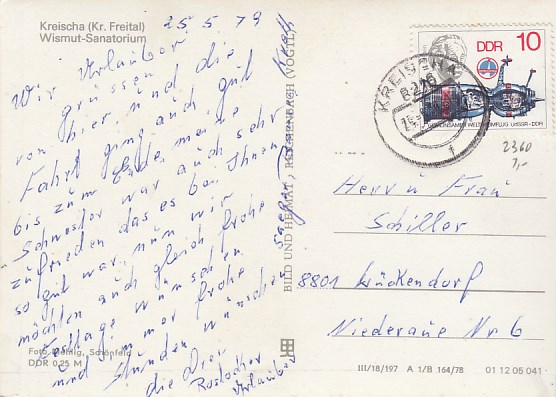 Kreischa (Kr. Freital)
Wismut-Sanatorium
25.5.79
Wir Urlauber
grüssen
von hier und die
Fahrt ging auch gut
bis zum Ende meine
Schwester war auch sehr
zufrieden das es bei Ihnen
so gut war, nun wir
möchten auch gleich frohe
Festtage wünschen
und immer frohe
Stunden wünschen
die Vier
Rostocker
Urlauber
Foto: Döring, Schönfeld
DDR 0,25 M
BILD UND HEIMAT, REICHENBACH (VOGTL)
DDR 10
GEMEINSAMER WELTRAUMFLUG UdSSR-DDR
KREISCHA
8216
2360
7,-
Herr u Frau
Schiller
8801 Lückendorf
Niederaue Nr 6
III/18/197 A 1/B 164/78 01 12 05 041